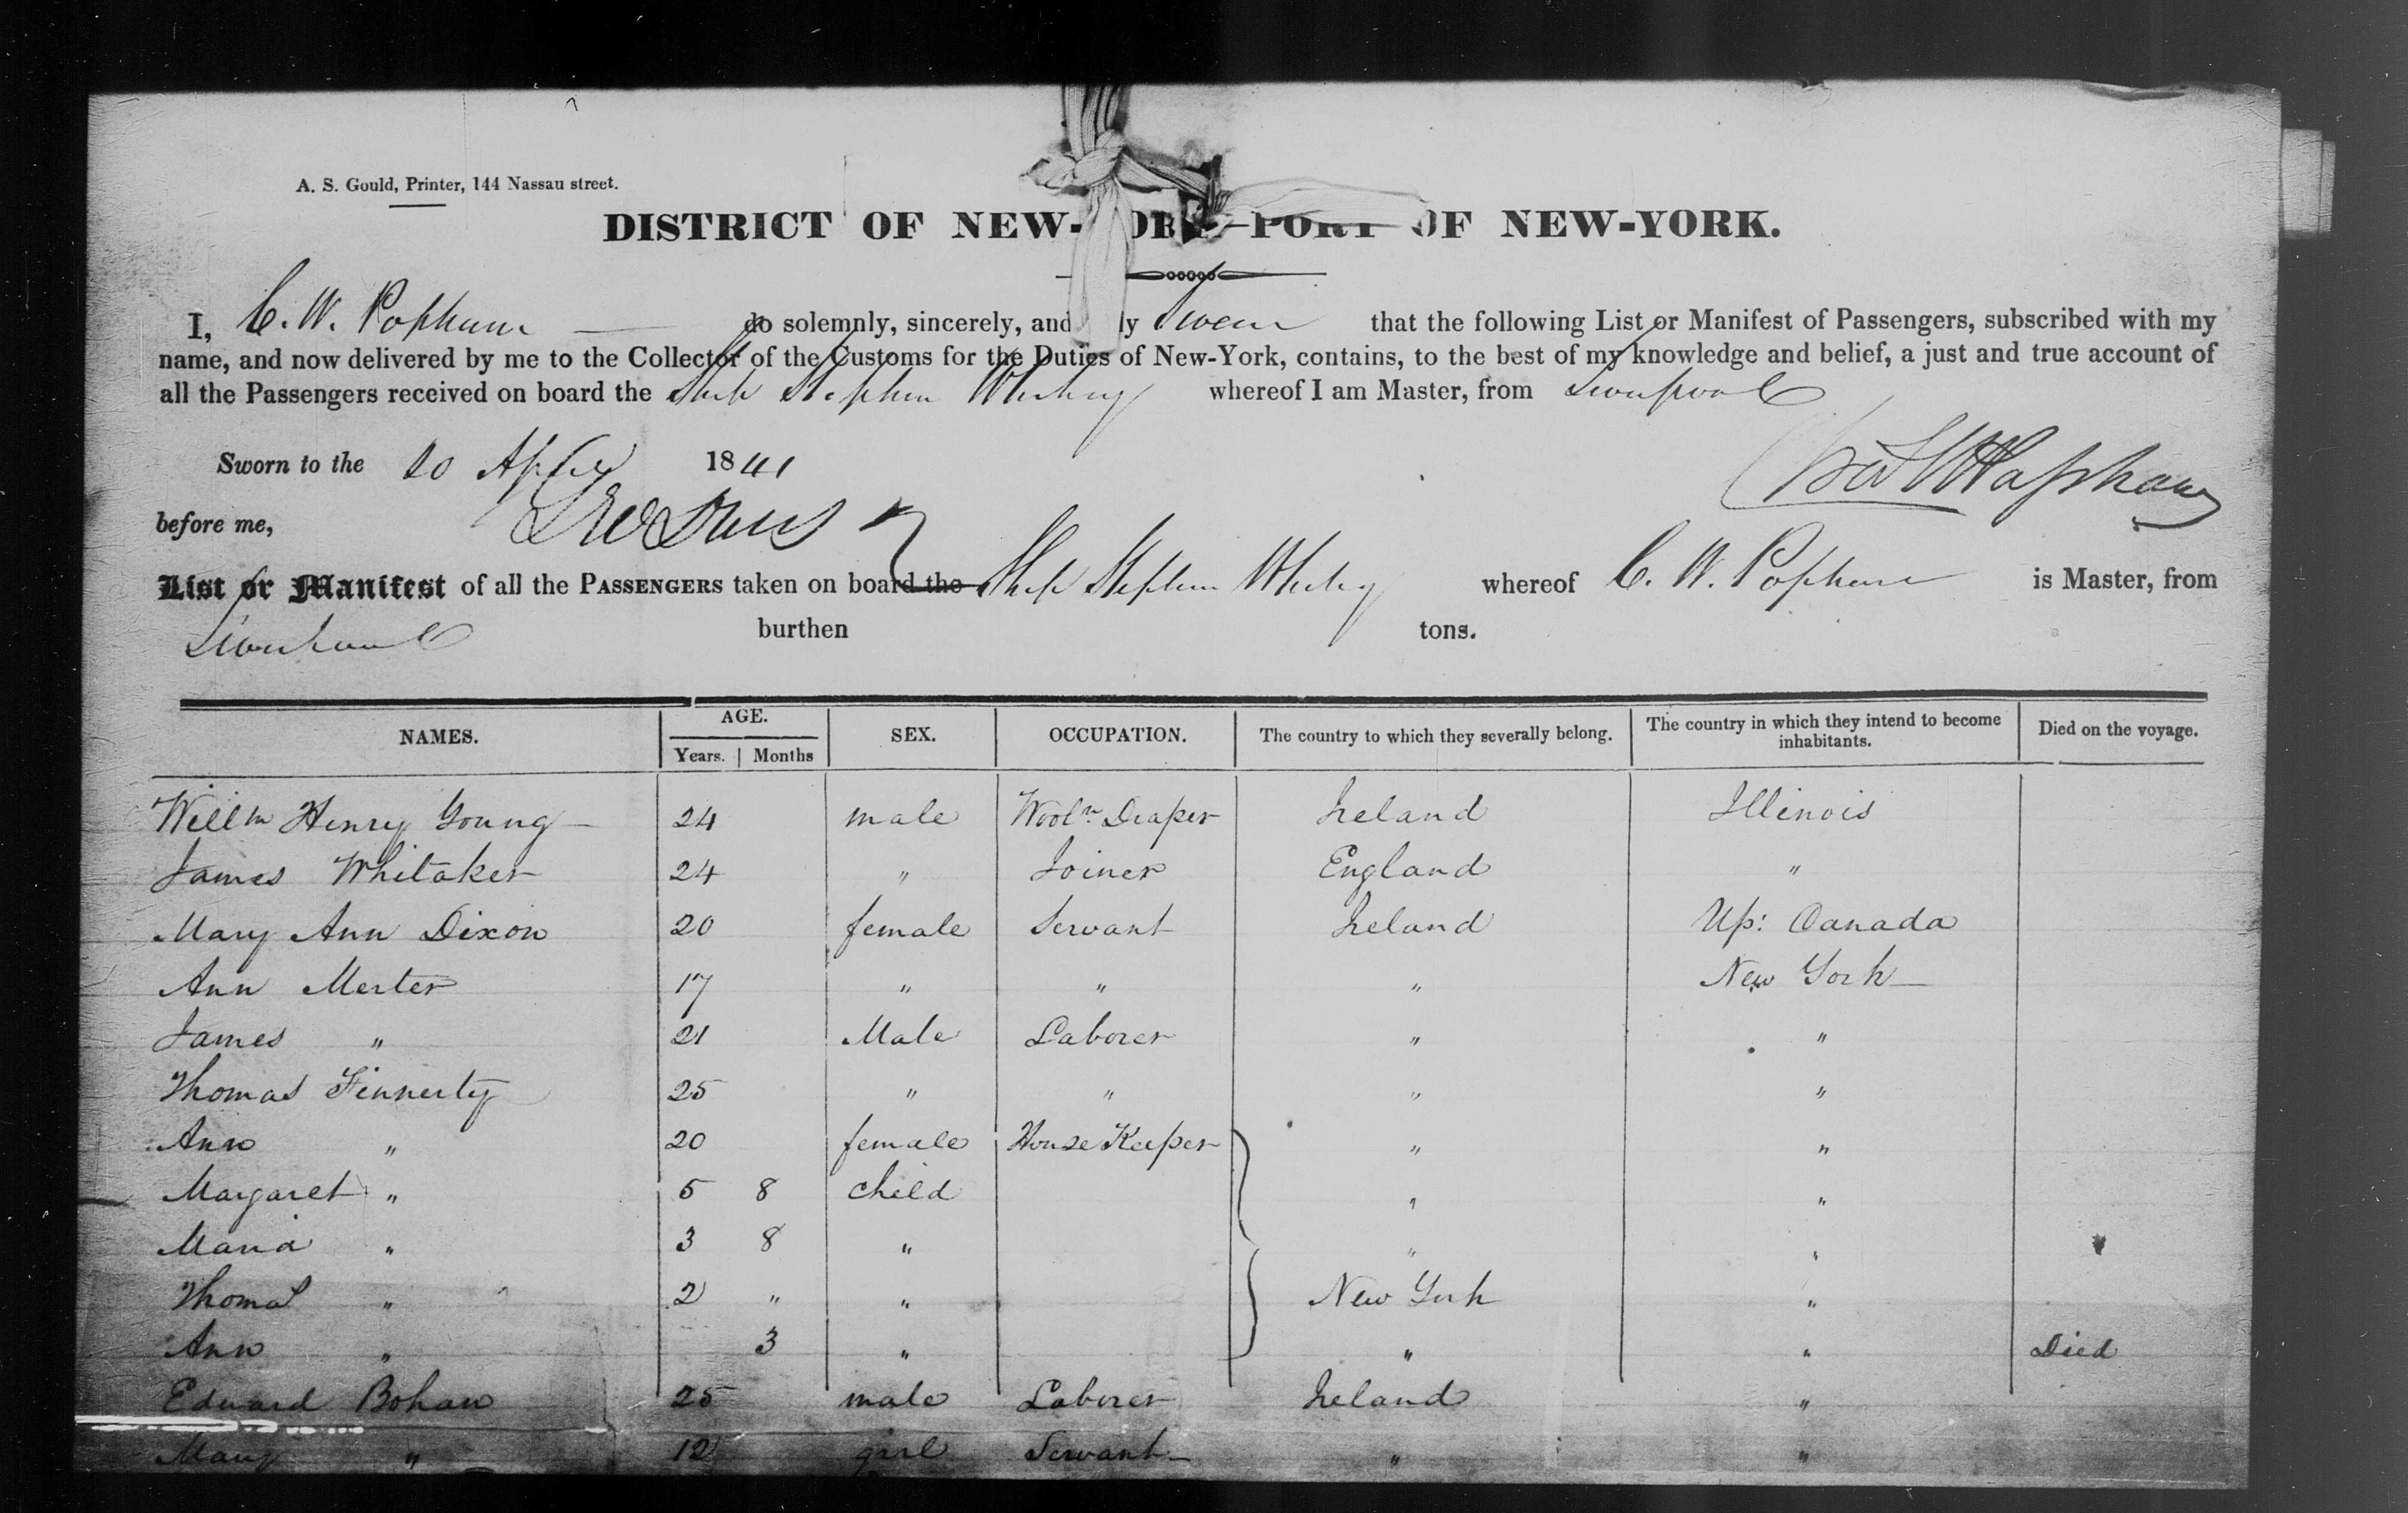 A. S. Gould, Printer, 144 Nassau street.
DISTRICT OF NEW-YORK—PORT OF NEW-YORK.
I, C. W. Popham do solemnly, sincerely, and ly Swear that the following List or Manifest of Passengers, subscribed with my
name, and now delivered by me to the Collector of the Customs for the Duties of New-York, contains, to the best of my knowledge and belief, a just and true account of
all the Passengers received on board the Ship Stephen Whitney whereof I am Master, from Liverpool
Sworn to the 20 April 1841
Popham
before me,
List or Manifest of all the PASSENGERS taken on board the Ship Stephen Whitney whereof C. W. Popham is Master, from
Liverpool burthen tons.
NAMES. AGE. SEX. OCCUPATION. The country to which they severally belong. The country in which they intend to become inhabitants. Died on the voyage.
Years. Months
Willm Henry Young 24 male Wooln Draper Ireland Illinois
James Whitaker 24 " Joiner England "
Mary Ann Dixon 20 female Servant Ireland Up: Canada
Ann Merter 17 " " " New York
James " 21 Male Laborer " "
Thomas Finnerty 25 " " " "
Ann " 20 female House Keeper " "
Margaret " 5 8 child " "
Maria " 3 8 " " "
Thomas " 2 " " New York "
Ann " 3 " " " Died
Edward Bohan 25 male Laborer Ireland "
Mary " 12 girl Servant " "